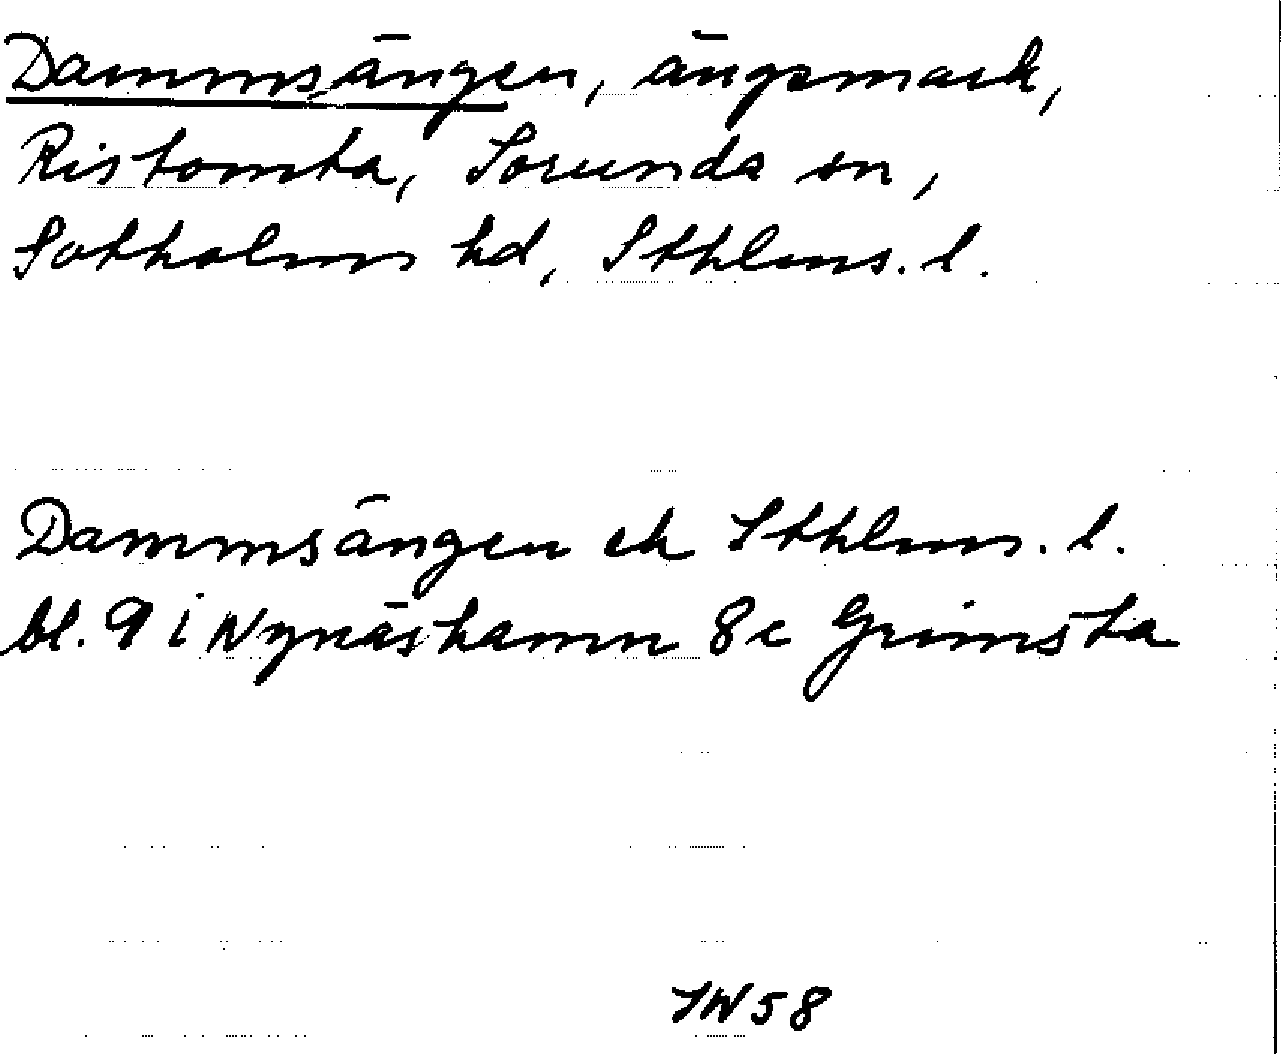 Dammsängen, ängsmark,
Ristomta, Sorunda sn,
Sotholms hd, Sthlms. l.
Dammsängen ek Sthlms. l.
bl. 9 i Nynäshamn 8c Grimsta
58